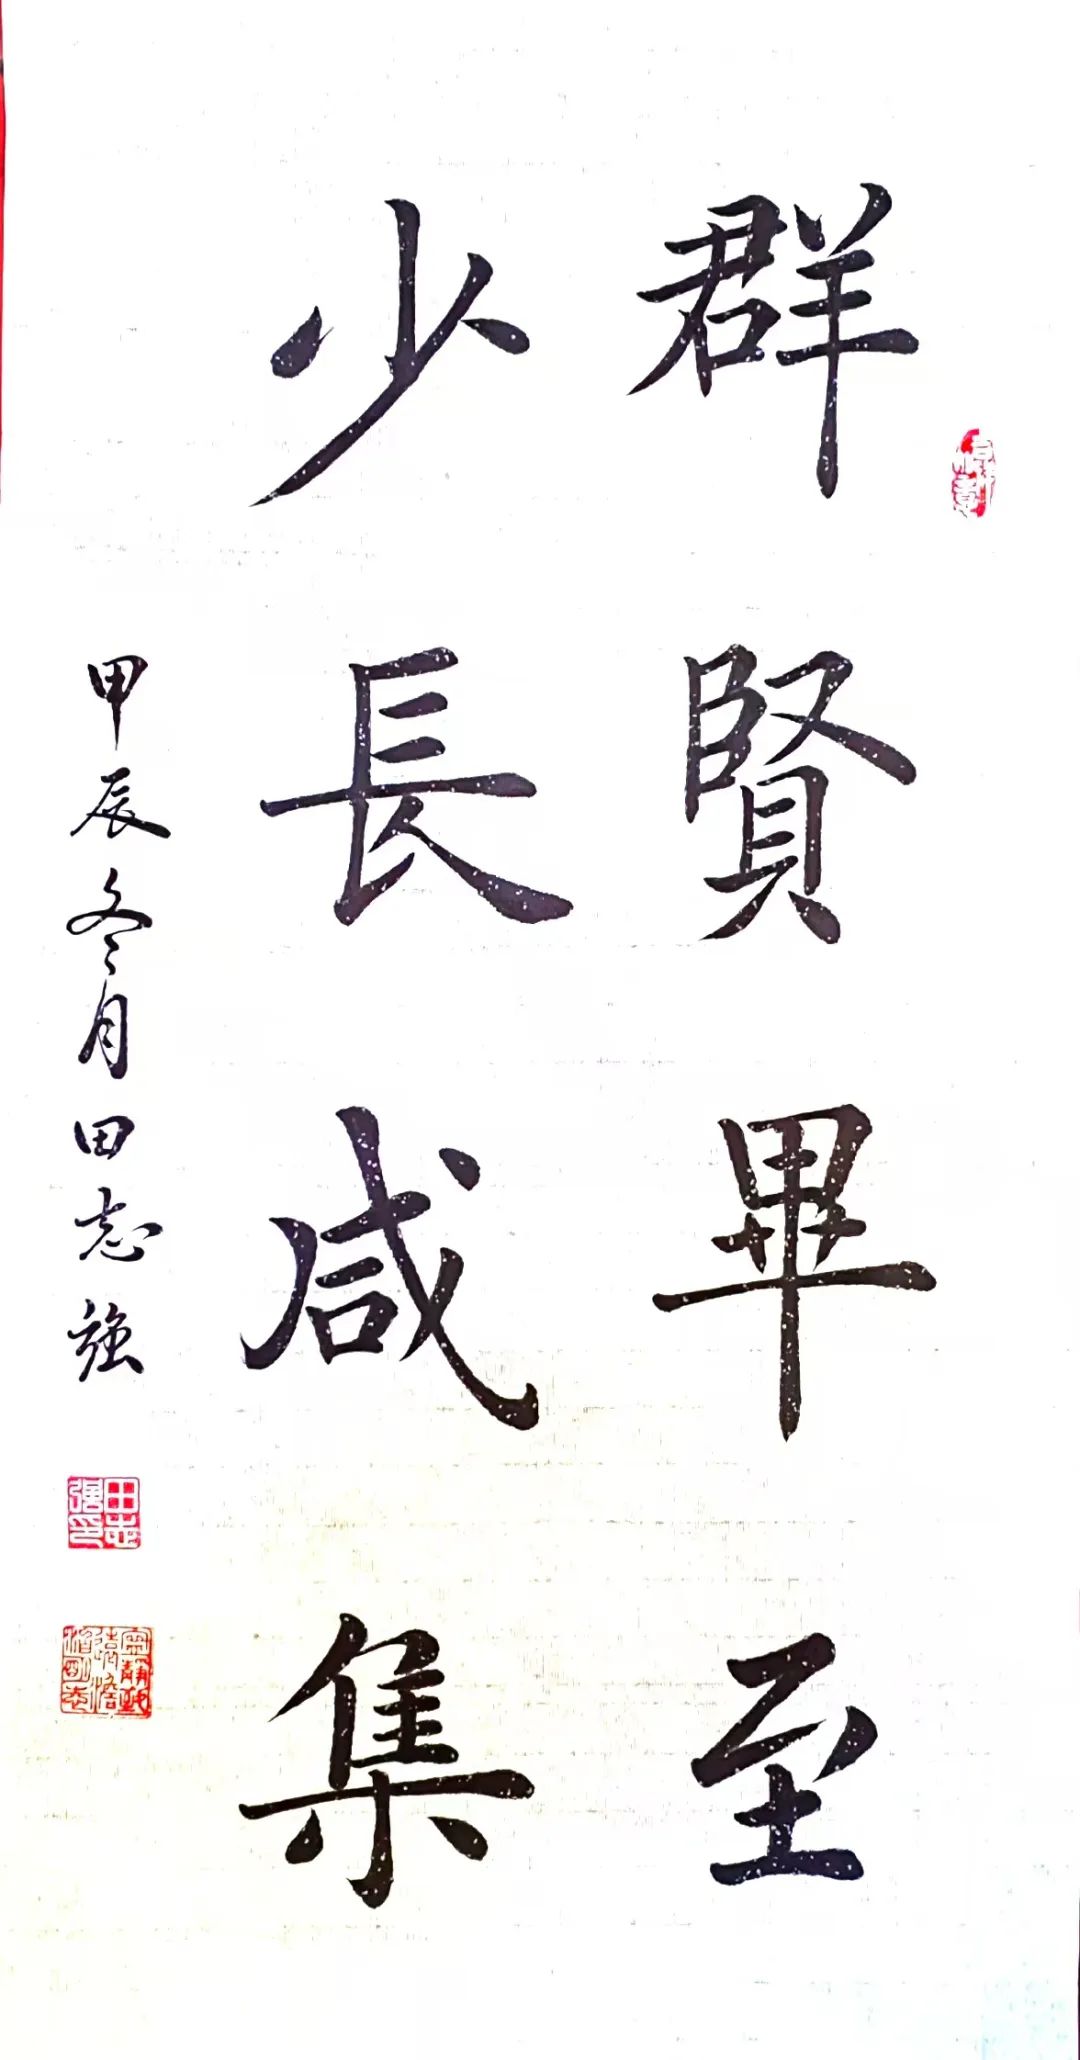 群賢畢至
少長咸集
甲辰冬月田志強
田志強印